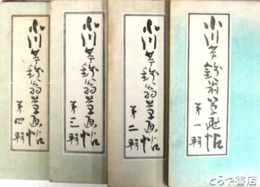 小川芋銭翁草画帖
第一輯
小川芋銭翁草画帖
第二輯
小川芋銭翁草画帖
第三輯
小川芋銭翁草画帖
第四輯
とらや書店